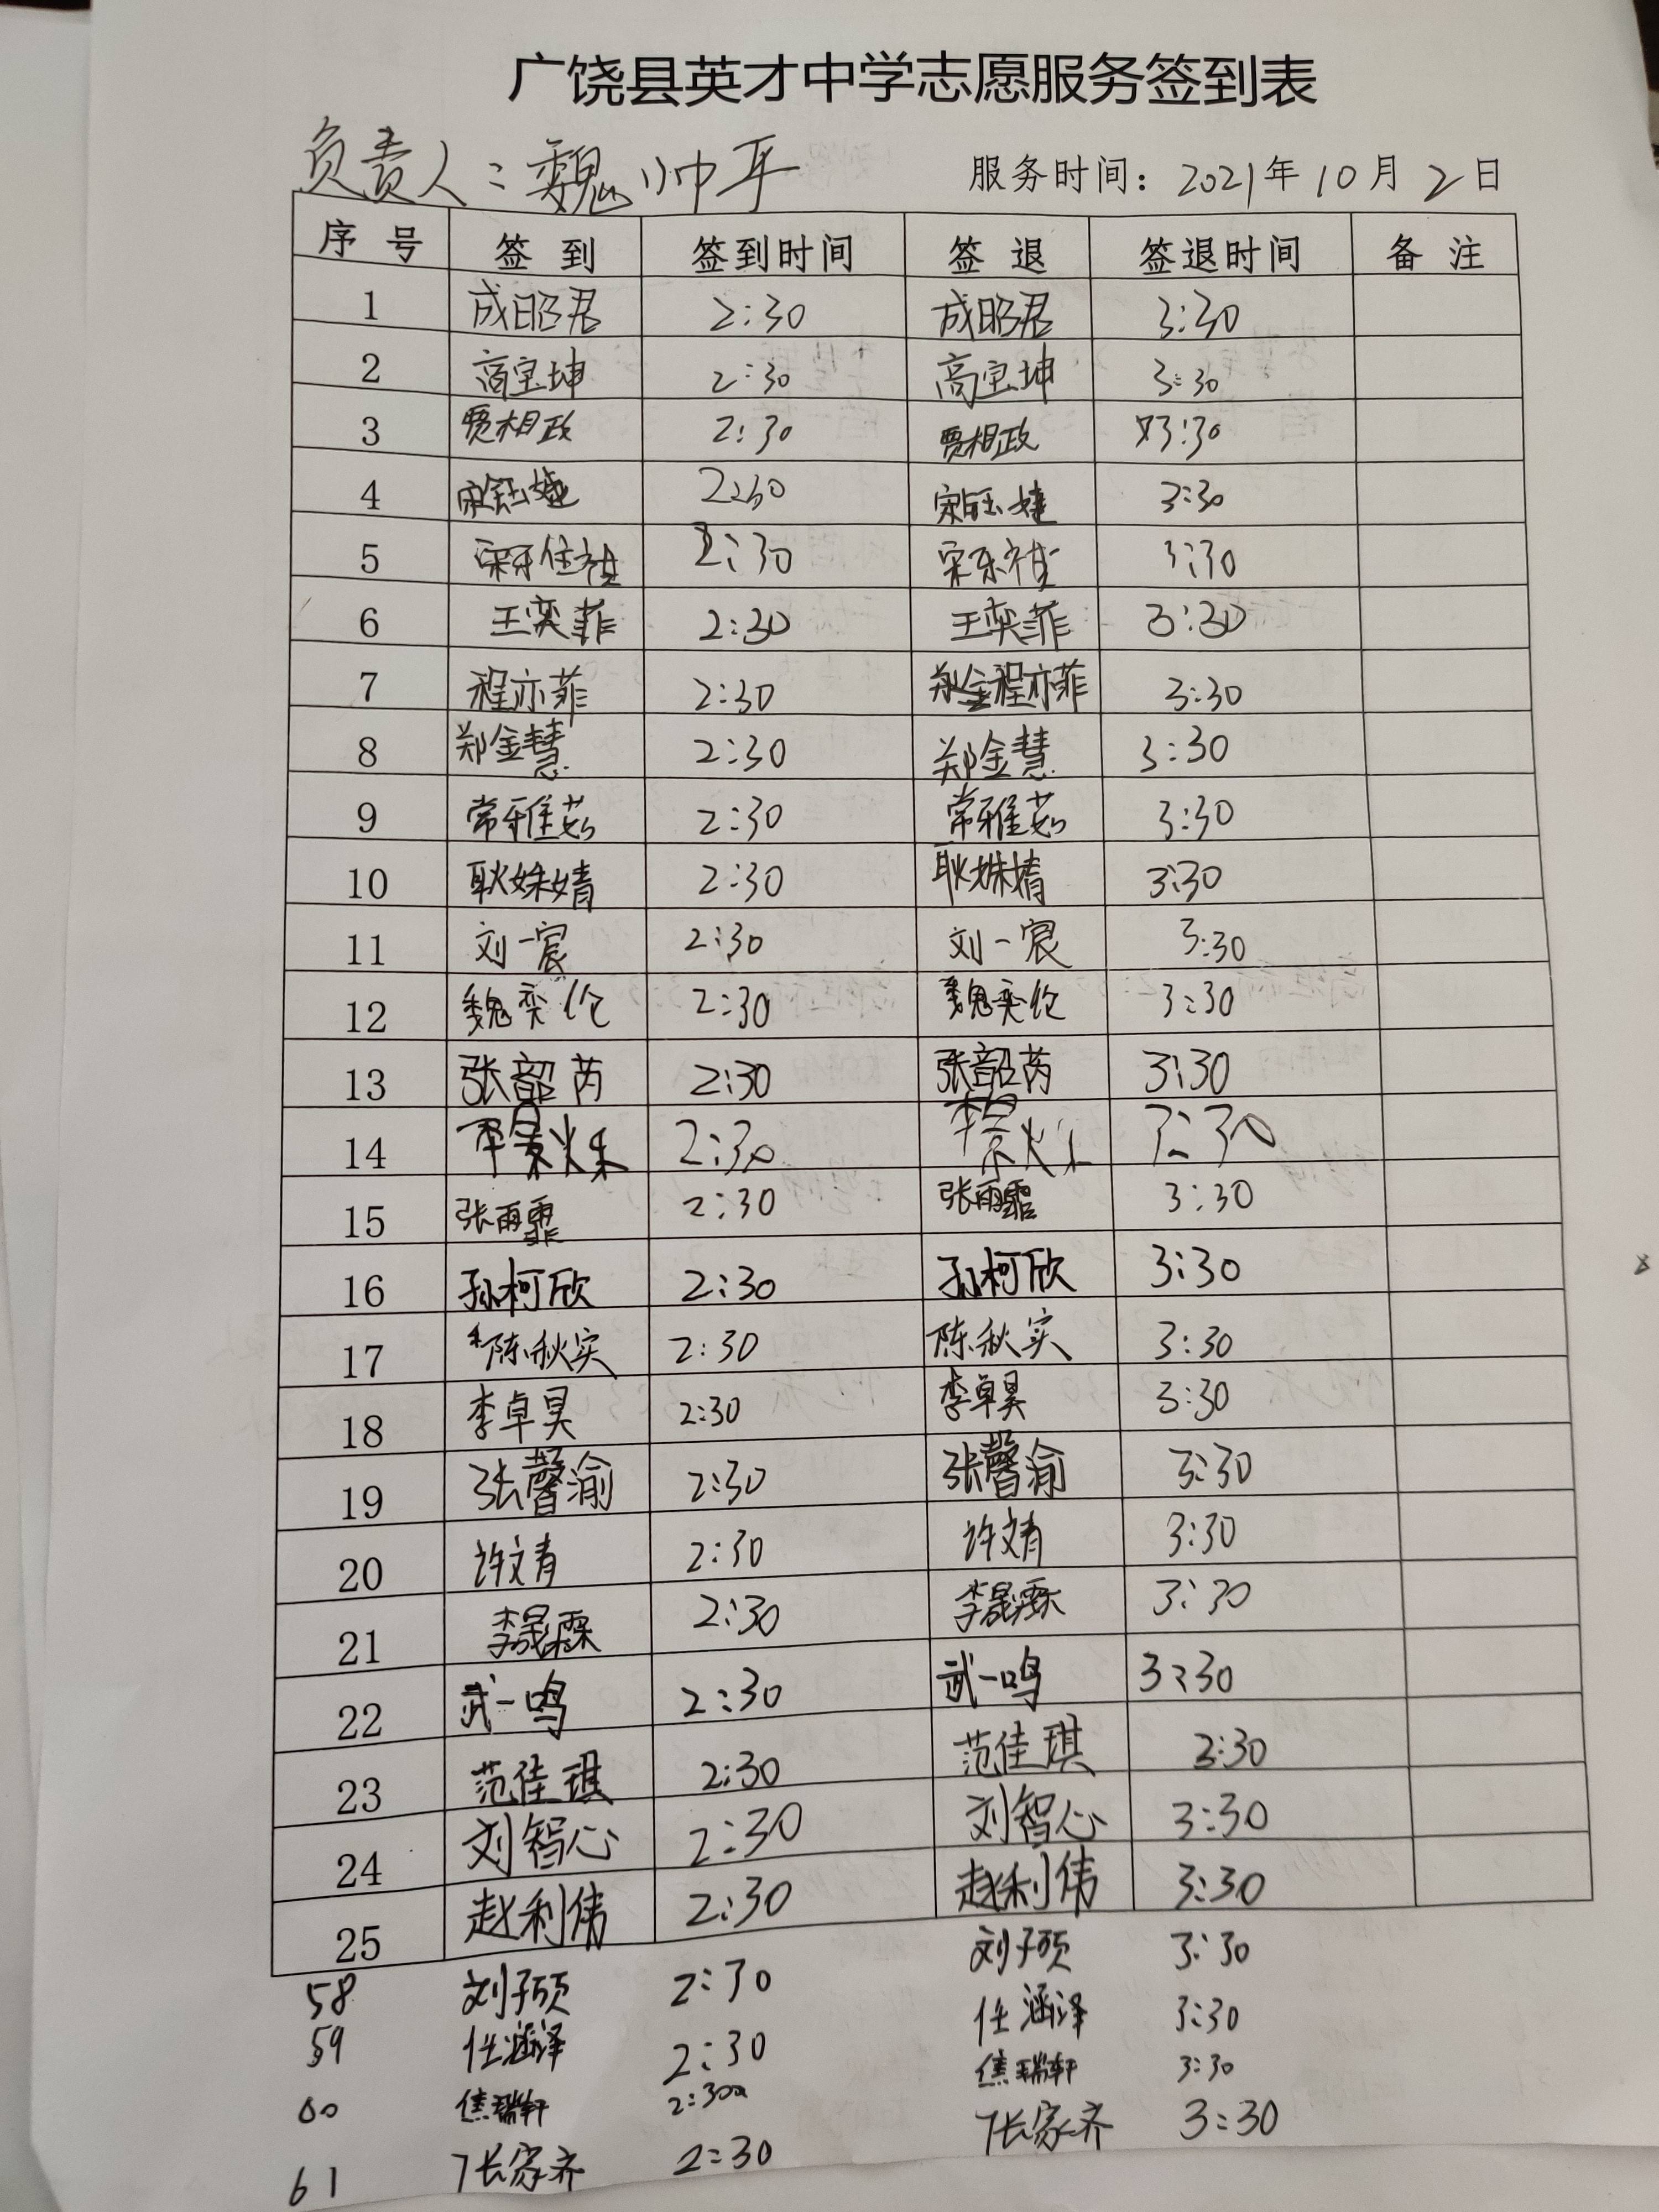 广饶县英才中学志愿服务签到表
负责人：魏帅平 服务时间：2021年10月2日
序号 签到 签到时间 签退 签退时间 备注
1 成昭君 2:30 成昭君 3:30
2 高宝坤 2:30 高宝坤 3:30
3 贾相政 2:30 贾相政 3:30
4 2:30 3:30
5 2:30 3:30
6 王奕菲 2:30 王奕菲 3:30
7 程亦菲 2:30 程亦菲 3:30
8 郑金慧 2:30 郑金慧 3:30
9 常雅茹 2:30 常雅茹 3:30
10 耿姝婧 2:30 耿姝婧 3:30
11 刘一宸 2:30 刘一宸 3:30
12 魏奕伦 2:30 魏奕伦 3:30
13 张韶芮 2:30 张韶芮 3:30
14 2:30 3:30
15 张雨霏 2:30 3:30
16 孙柯欣 2:30 孙柯欣 3:30
17 陈秋实 2:30 陈秋实 3:30
18 李卓昊 2:30 李卓昊 3:30
19 张馨渝 2:30 张馨渝 3:30
20 许文青 2:30 许文青 3:30
21 李晟霖 2:30 李晟霖 3:30
22 武一鸣 2:30 武一鸣 3:30
23 范佳琪 2:30 范佳琪 3:30
24 刘智心 2:30 刘智心 3:30
25 赵利伟 2:30 赵利伟 3:30
58 刘子硕 2:30 刘子硕 3:30
59 任涵泽 2:30 任涵泽 3:30
60 焦瑞轩 2:30 焦瑞轩 3:30
61 张家齐 2:30 张家齐 3:30